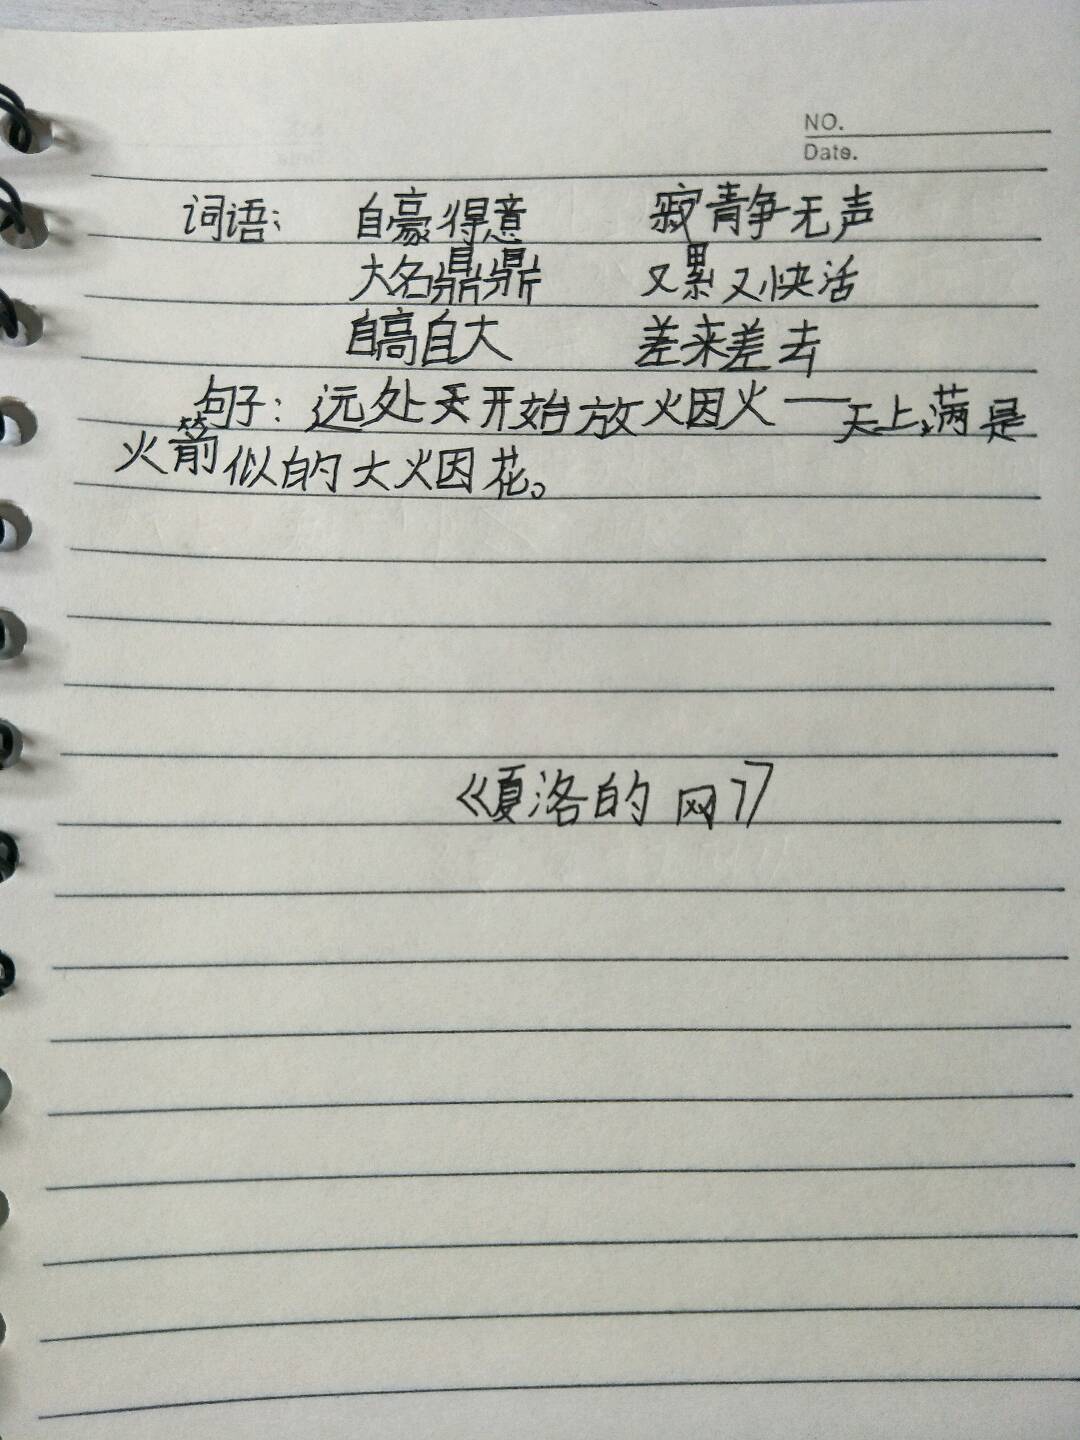 NO.
Date.
词语: 自豪得意 寂静无声
大名鼎鼎 又累又快活
自高自大 差来差去
句子: 远处天开始放火因火——天上满是
火箭似的大火因花。
《夏洛的网》